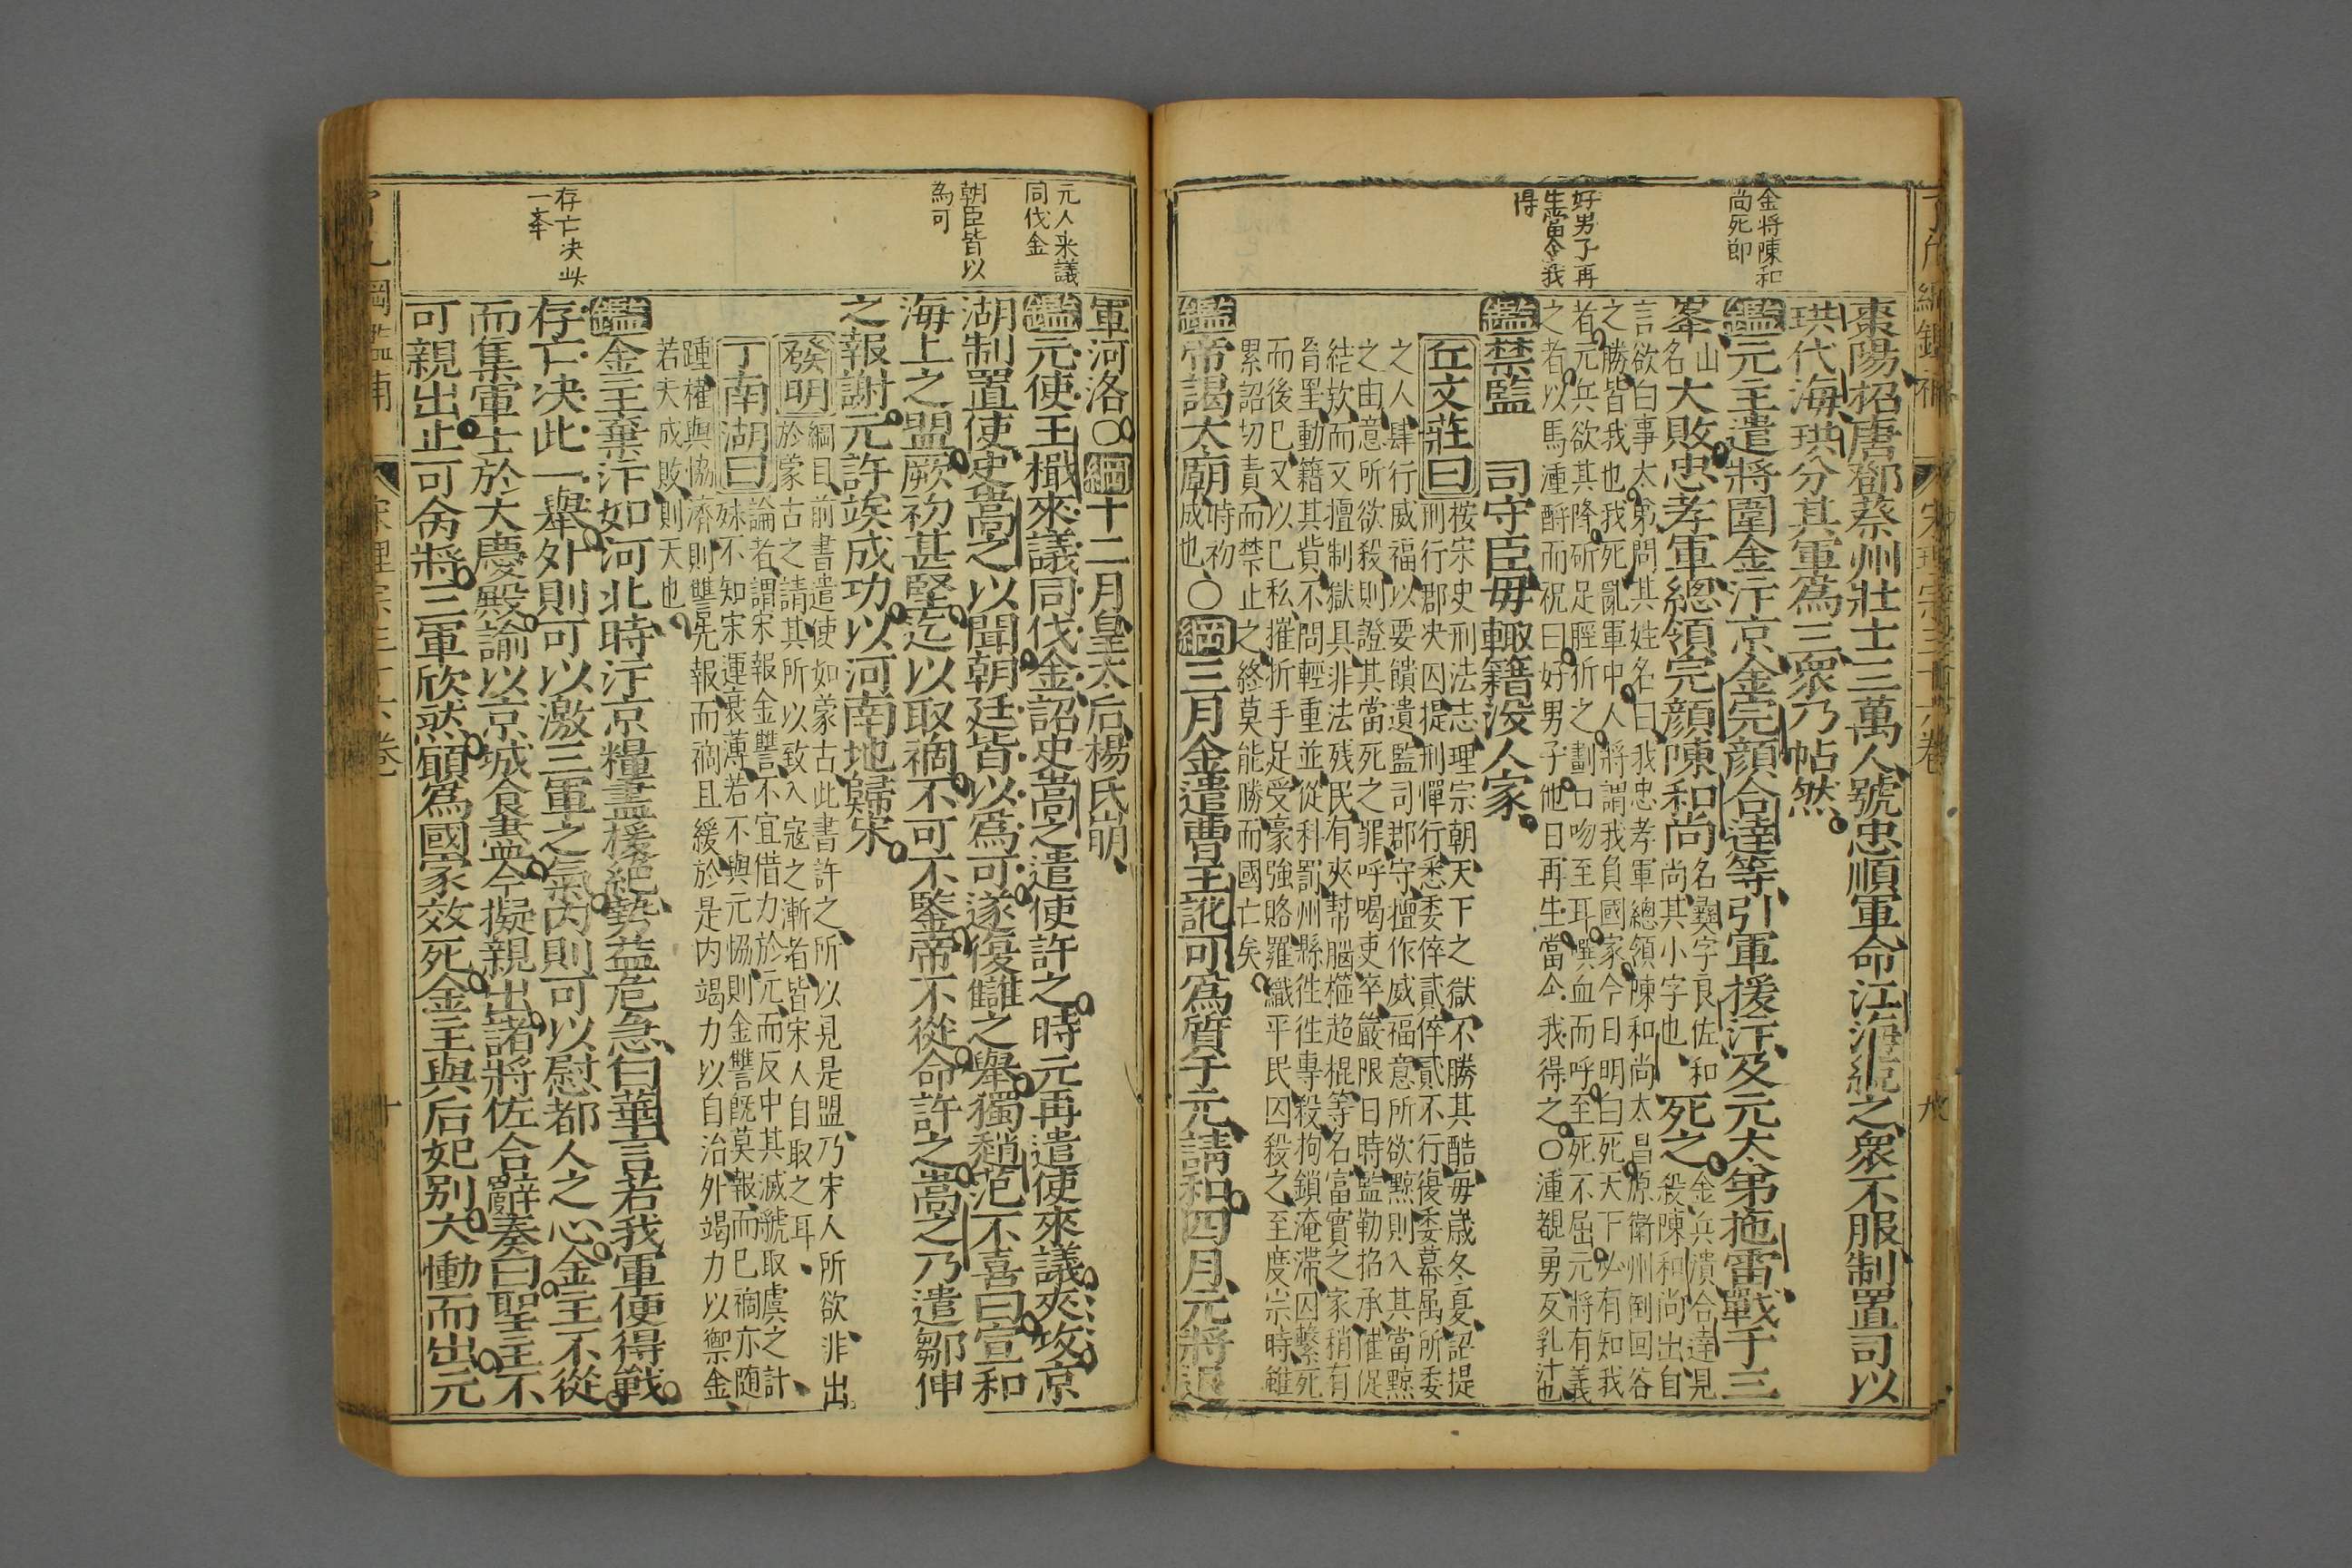 金將陳和
尚死節
好男子再
生當令我
得
棗陽招唐鄧蔡州壯士三萬人號忠順軍命江海統之衆不服制置司以
珙代海珙分其軍爲三衆乃帖然
鑑元主遣將圍金汴京金完顏合達等引軍援汴及元太弟拖雷戰于三
峯山名大敗忠孝軍總領完顏陳和尚名彝字良佐和尚其小字也死之金兵潰合達見殺陳和尚出自
言欲白事太弟問其姓名曰我忠孝軍總領陳和尚太昌原衛州倒回谷
之勝皆我也我死亂軍中人將謂我負國家今日明白死天下必有知我
者元兵欲其降斫足脛折之劃口吻至耳噀血而呼至死不屈元將有義
之者以馬湩酹而祝曰好男子他日再生當令我得之〇湩覩勇反乳汁也
鑑禁監 司守臣毋輙籍沒人家
丘文莊曰按宋史刑法志理宗朝天下之獄不勝其酷每歲冬夏詔提
刑行郡决囚提刑憚行悉委倅貳倅貳不行復委幕属所委
之人肆行威福以要饋遺監司郡守擅作威福意所欲黥則入其當黥
之由意所欲殺則證其當死之罪呼喝吏卒嚴限日時監勒招承催促
結欵而又擅制獄具非法残民有夾幇腦箍超棍等名富實之家稍有
罥罣動籍其貲不問輕重並從科罰州縣徃徃專殺拘鎖淹滯囚繫死
而後已又以已私摧折手足受豪強賂羅織平民囚殺之至度宗時雖
累詔切責而禁止之終莫能勝而國亡矣
鑑帝謁太廟時初成也〇綱三月金遣曹王訛可爲質于元請和四月元將退
元人来議
同伐金
朝臣皆以
為可
存亡决此
一舉
軍河洛〇綱十二月皇太后楊氏崩
鑑元使王檝來議同伐金詔史嵩之遣使許之時元再遣使來議夾攻京
湖制置使史嵩之以聞朝廷皆以爲可遂復讎之舉獨趙范不喜曰宣和
海上之盟厥初甚堅迄以取禍不可不鑒帝不從命許之嵩之乃遣鄒伸
之報謝元許竢成功以河南地歸宋
發明綱目前書遣使如蒙古此書許之所以見是盟乃宋人所欲非出
於蒙古之請其所以致入寇之漸者皆宋人自取之耳
丁南湖曰論者謂宋報金讐不宜借力於元而反中其滅虢取虞之計
殊不知宋運衰薄若不與元恊則金讐旣莫報而已禍亦随
踵權與恊濟則讐先報而禍且緩於是内竭力以自治外竭力以禦金
若夫成敗則天也
鑑金主棄汴如河北時汴京糧盡援絕勢益危急白華言若我軍便得戰
存亡决此一舉外則可以激三軍之氣内則可以慰都人之心金主不從
而集軍士於大慶殿諭以京城食盡今擬親出諸將佐合辭奏曰聖主不
可親出止可命將三軍欣然願爲國家效死金主與后妃别大慟而出元